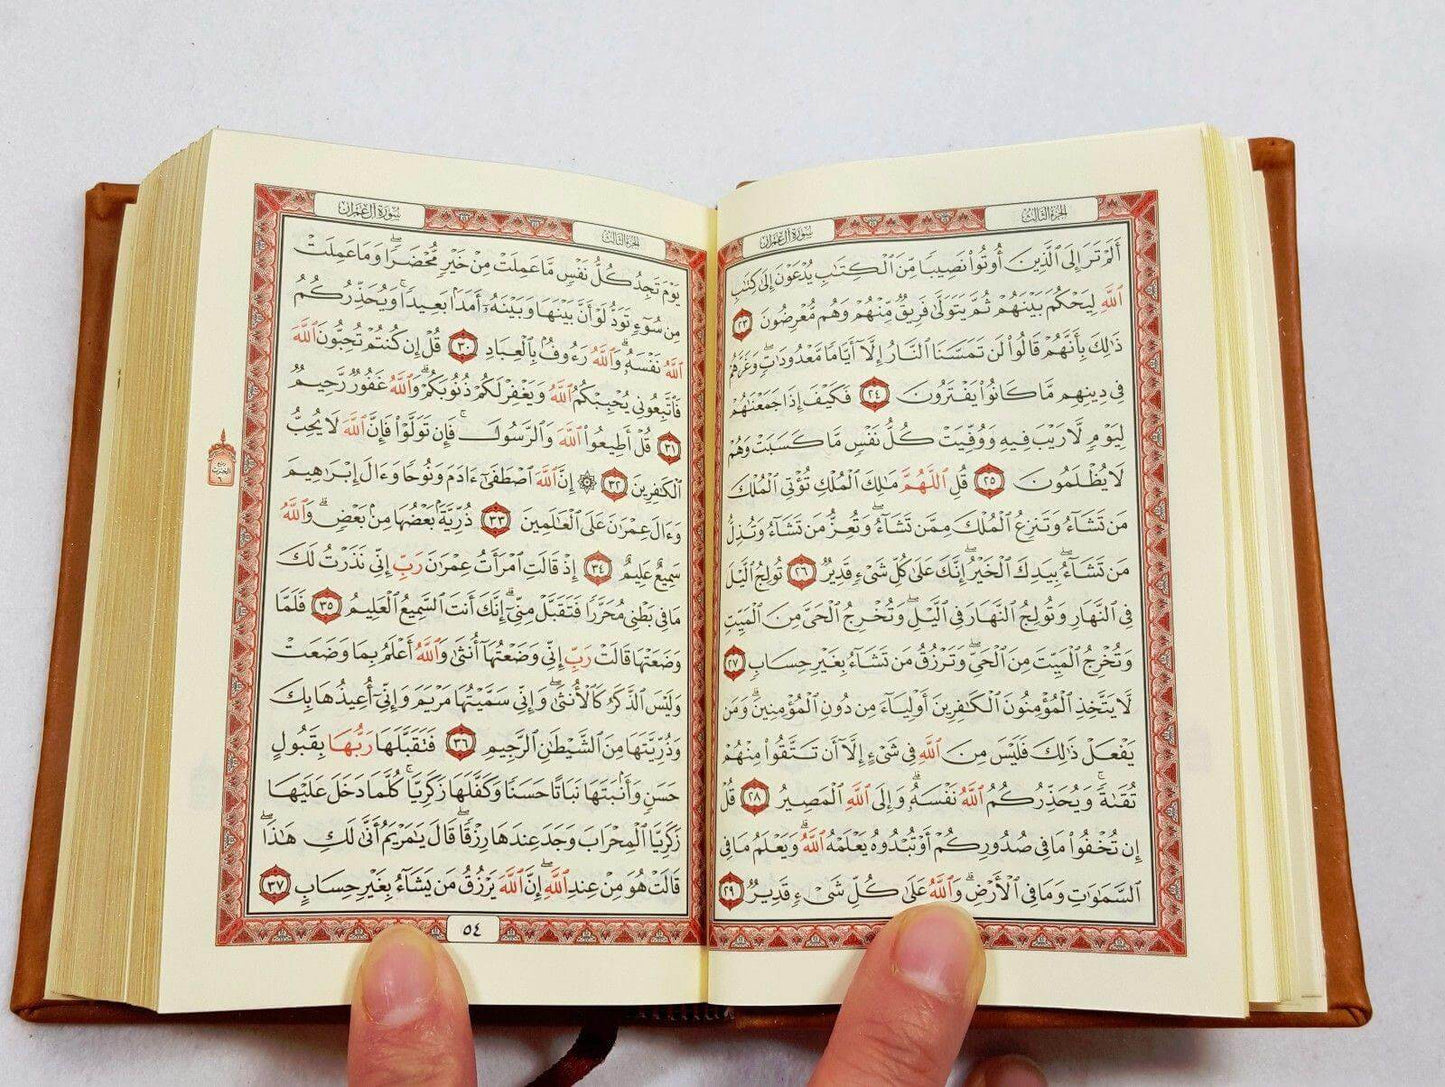 الجزء الثالث
سورة آل عمران
أَلَمْ تَرَ إِلَى ٱلَّذِينَ أُوتُوا۟ نَصِيبًا مِّنَ ٱلْكِتَٰبِ يُدْعَوْنَ إِلَىٰ كِتَٰبِ
ٱللَّهِ لِيَحْكُمَ بَيْنَهُمْ ثُمَّ يَتَوَلَّىٰ فَرِيقٌ مِّنْهُمْ وَهُم مُّعْرِضُونَ ٢٣
ذَٰلِكَ بِأَنَّهُمْ قَالُوا۟ لَن تَمَسَّنَا ٱلنَّارُ إِلَّآ أَيَّامًا مَّعْدُودَٰتٍ ۖ وَغَرَّهُمْ
فِى دِينِهِم مَّا كَانُوا۟ يَفْتَرُونَ ٢٤ فَكَيْفَ إِذَا جَمَعْنَٰهُمْ
لِيَوْمٍ لَّا رَيْبَ فِيهِ وَوُفِّيَتْ كُلُّ نَفْسٍ مَّا كَسَبَتْ وَهُمْ
لَا يُظْلَمُونَ ٢٥ قُلِ ٱللَّهُمَّ مَٰلِكَ ٱلْمُلْكِ تُؤْتِى ٱلْمُلْكَ
مَن تَشَآءُ وَتَنزِعُ ٱلْمُلْكَ مِمَّن تَشَآءُ وَتُعِزُّ مَن تَشَآءُ وَتُذِلُّ
مَن تَشَآءُ ۖ بِيَدِكَ ٱلْخَيْرُ ۖ إِنَّكَ عَلَىٰ كُلِّ شَىْءٍ قَدِيرٌ ٢٦ تُولِجُ ٱلَّيْلَ
فِى ٱلنَّهَارِ وَتُولِجُ ٱلنَّهَارَ فِى ٱلَّيْلِ ۖ وَتُخْرِجُ ٱلْحَىَّ مِنَ ٱلْمَيِّتِ
وَتُخْرِجُ ٱلْمَيِّتَ مِنَ ٱلْحَىِّ ۖ وَتَرْزُقُ مَن تَشَآءُ بِغَيْرِ حِسَابٍ ٢٧
لَّا يَتَّخِذِ ٱلْمُؤْمِنُونَ ٱلْكَٰفِرِينَ أَوْلِيَآءَ مِن دُونِ ٱلْمُؤْمِنِينَ ۖ وَمَن
يَفْعَلْ ذَٰلِكَ فَلَيْسَ مِنَ ٱللَّهِ فِى شَىْءٍ إِلَّآ أَن تَتَّقُوا۟ مِنْهُمْ
تُقَىٰةً ۗ وَيُحَذِّرُكُمُ ٱللَّهُ نَفْسَهُۥ ۗ وَإِلَى ٱللَّهِ ٱلْمَصِيرُ ٢٨ قُلْ
إِن تُخْفُوا۟ مَا فِى صُدُورِكُمْ أَوْ تُبْدُوهُ يَعْلَمْهُ ٱللَّهُ ۗ وَيَعْلَمُ مَا فِى
ٱلسَّمَٰوَٰتِ وَمَا فِى ٱلْأَرْضِ ۗ وَٱللَّهُ عَلَىٰ كُلِّ شَىْءٍ قَدِيرٌ ٢٩
الجزء الثالث
سورة آل عمران
يَوْمَ تَجِدُ كُلُّ نَفْسٍ مَّا عَمِلَتْ مِنْ خَيْرٍ مُّحْضَرًا وَمَا عَمِلَتْ
مِن سُوٓءٍ تَوَدُّ لَوْ أَنَّ بَيْنَهَا وَبَيْنَهُۥٓ أَمَدًۢا بَعِيدًا ۗ وَيُحَذِّرُكُمُ
ٱللَّهُ نَفْسَهُۥ ۗ وَٱللَّهُ رَءُوفٌۢ بِٱلْعِبَادِ ٣٠ قُلْ إِن كُنتُمْ تُحِبُّونَ ٱللَّهَ
فَٱتَّبِعُونِى يُحْبِبْكُمُ ٱللَّهُ وَيَغْفِرْ لَكُمْ ذُنُوبَكُمْ ۗ وَٱللَّهُ غَفُورٌ رَّحِيمٌ
٣١ قُلْ أَطِيعُوا۟ ٱللَّهَ وَٱلرَّسُولَ ۖ فَإِن تَوَلَّوْا۟ فَإِنَّ ٱللَّهَ لَا يُحِبُّ
ٱلْكَٰفِرِينَ ٣٢ ۞ إِنَّ ٱللَّهَ ٱصْطَفَىٰٓ ءَادَمَ وَنُوحًا وَءَالَ إِبْرَٰهِيمَ
وَءَالَ عِمْرَٰنَ عَلَى ٱلْعَٰلَمِينَ ٣٣ ذُرِّيَّةًۢ بَعْضُهَا مِنۢ بَعْضٍ ۗ وَٱللَّهُ
سَمِيعٌ عَلِيمٌ ٣٤ إِذْ قَالَتِ ٱمْرَأَتُ عِمْرَٰنَ رَبِّ إِنِّى نَذَرْتُ لَكَ
مَا فِى بَطْنِى مُحَرَّرًا فَتَقَبَّلْ مِنِّىٓ ۖ إِنَّكَ أَنتَ ٱلسَّمِيعُ ٱلْعَلِيمُ ٣٥ فَلَمَّا
وَضَعَتْهَا قَالَتْ رَبِّ إِنِّى وَضَعْتُهَآ أُنثَىٰ وَٱللَّهُ أَعْلَمُ بِمَا وَضَعَتْ
وَلَيْسَ ٱلذَّكَرُ كَٱلْأُنثَىٰ ۖ وَإِنِّى سَمَّيْتُهَا مَرْيَمَ وَإِنِّىٓ أُعِيذُهَا بِكَ
وَذُرِّيَّتَهَا مِنَ ٱلشَّيْطَٰنِ ٱلرَّجِيمِ ٣٦ فَتَقَبَّلَهَا رَبُّهَا بِقَبُولٍ
حَسَنٍ وَأَنۢبَتَهَا نَبَاتًا حَسَنًا وَكَفَّلَهَا زَكَرِيَّا ۖ كُلَّمَا دَخَلَ عَلَيْهَا
زَكَرِيَّا ٱلْمِحْرَابَ وَجَدَ عِندَهَا رِزْقًا ۖ قَالَ يَٰمَرْيَمُ أَنَّىٰ لَكِ هَٰذَا ۖ
قَالَتْ هُوَ مِنْ عِندِ ٱللَّهِ ۖ إِنَّ ٱللَّهَ يَرْزُقُ مَن يَشَآءُ بِغَيْرِ حِسَابٍ ٣٧
٥٤